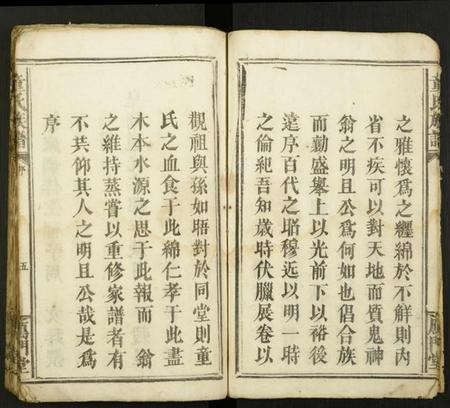 童氏族譜
鴈門堂
之雅懷爲之纒綿於不鮮則內
省不疾可以對天地而質鬼神
翁之明且公爲何如也倡合族
而勷盛舉上以光前下以裕後
遠序百代之昭穆近以明一時
之倫紀吾知歲時伏臘展卷以
觀祖與孫如晤對於同堂則童
氏之血食于此綿仁孝于此盡
木本水源之思于此報而 翁
之維持蒸嘗以重修家譜者有
不共仰其人之明且公哉是爲
序
童氏族譜
序
五
鴈門堂